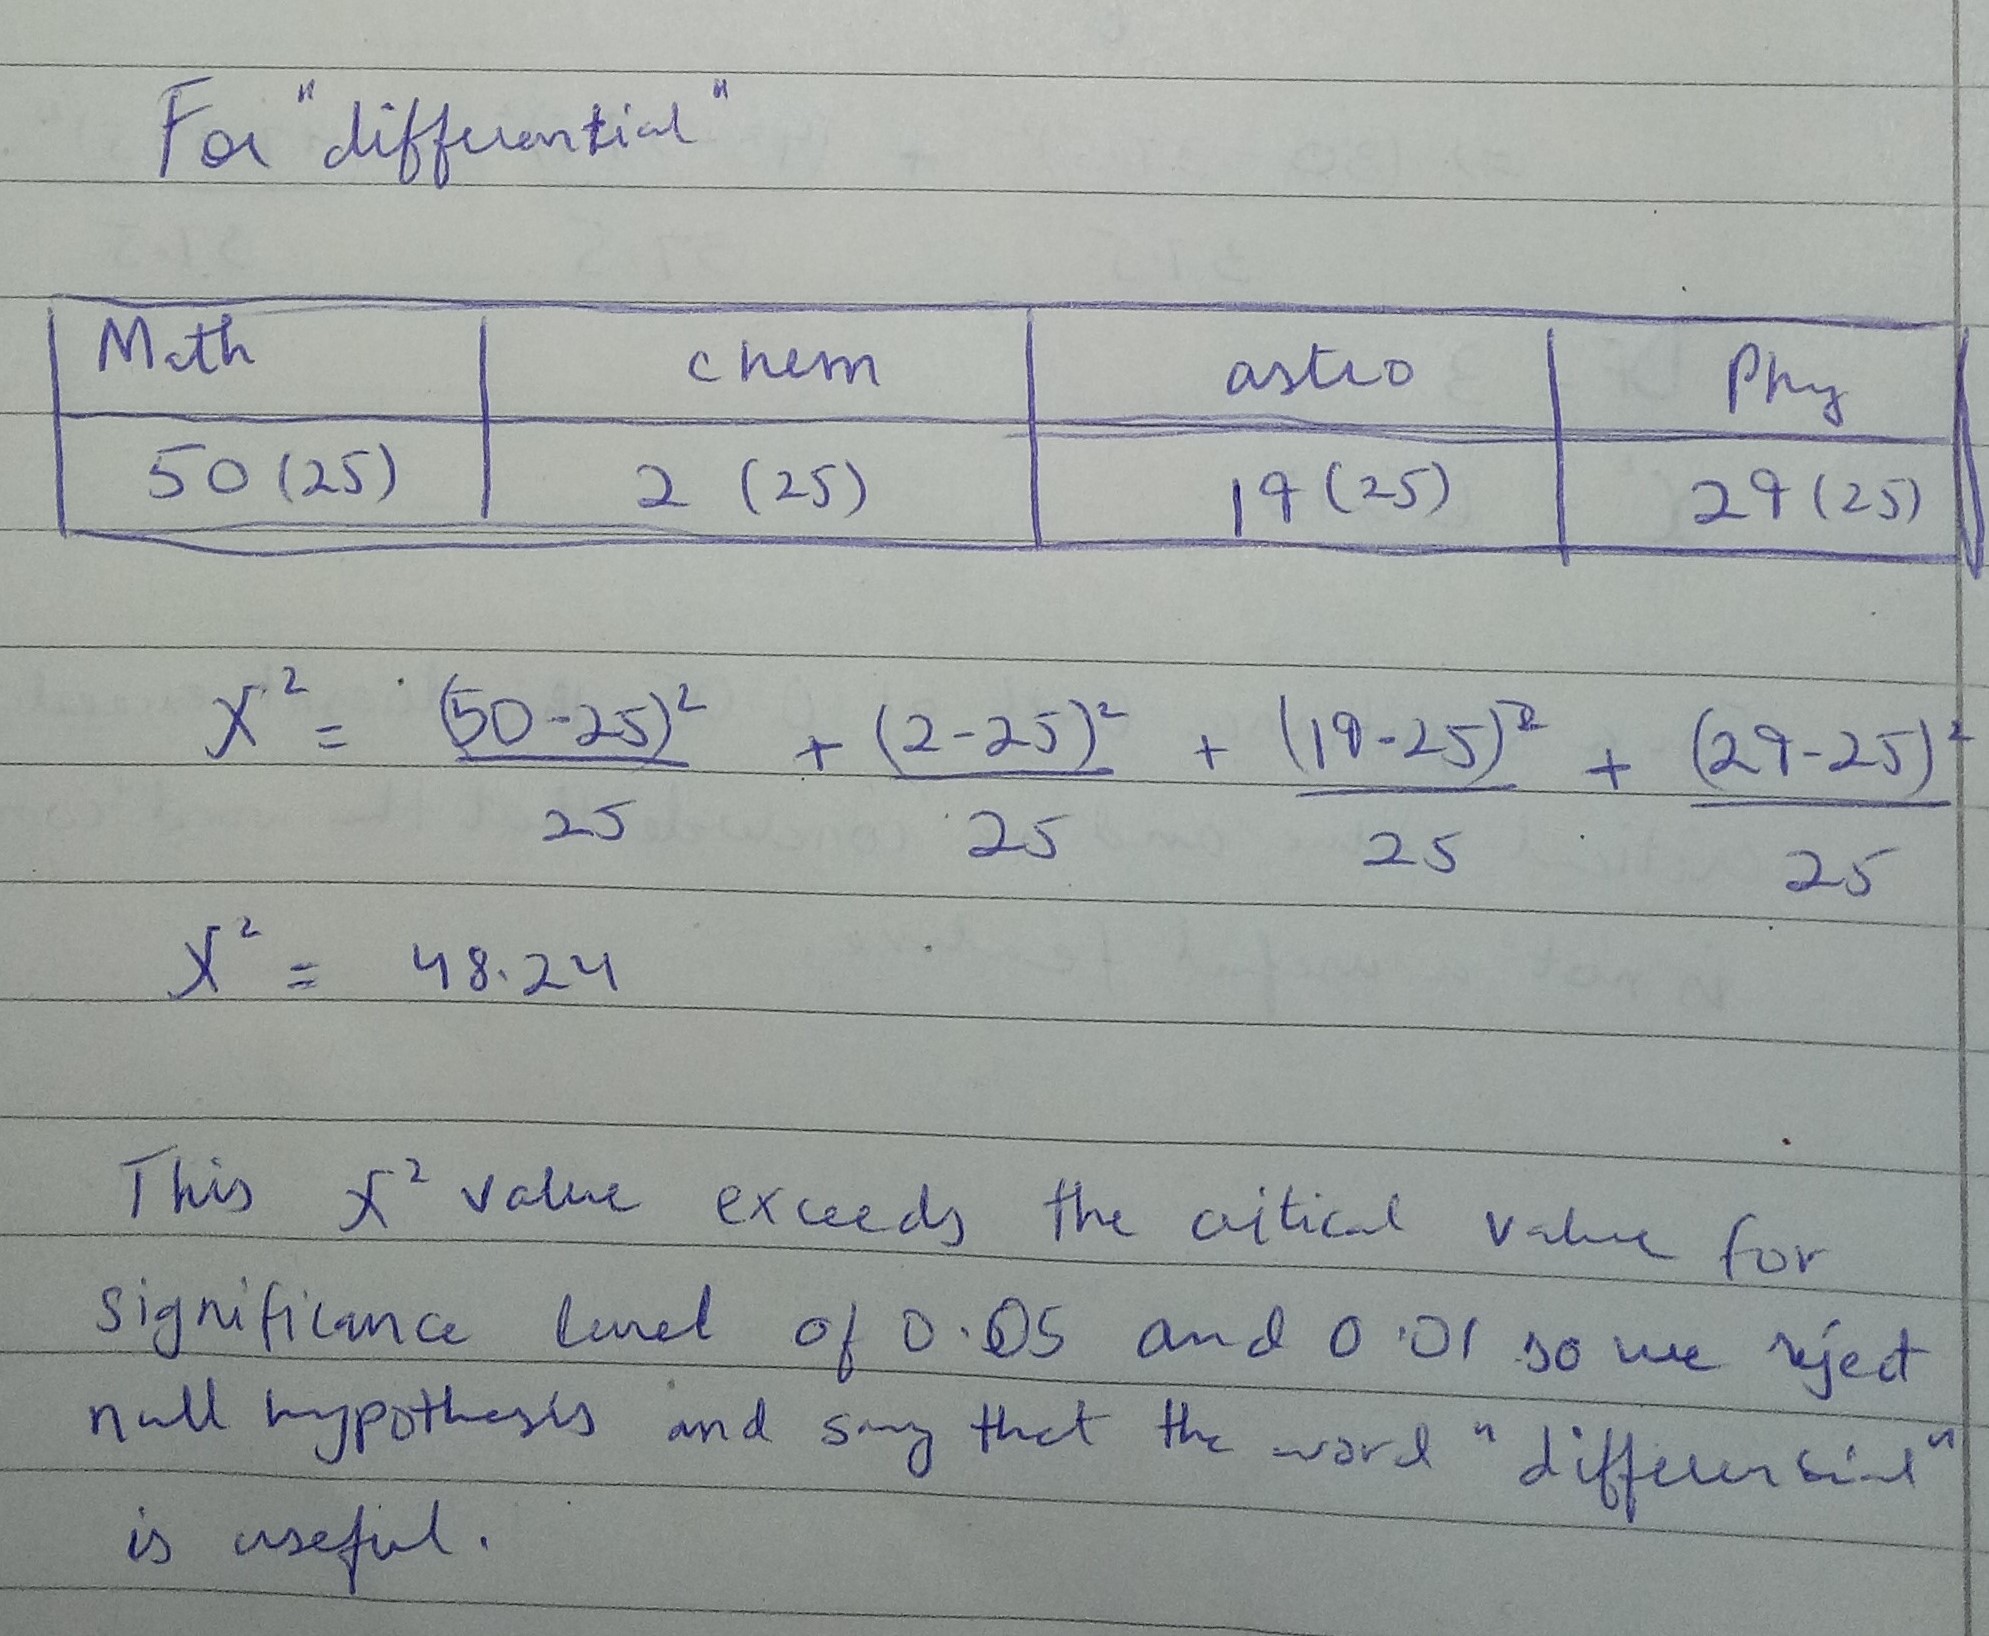 For "differential"
Math chem astro Phy
50 (25) 2 (25) 19 (25) 29 (25)
X² = (50-25)²/25 + (2-25)²/25 + (19-25)²/25 + (29-25)²/25
X² = 48.24
This X² value exceeds the critical value for
significance level of 0.05 and 0.01 so we reject
null hypothesis and say that the word "differential"
is useful.